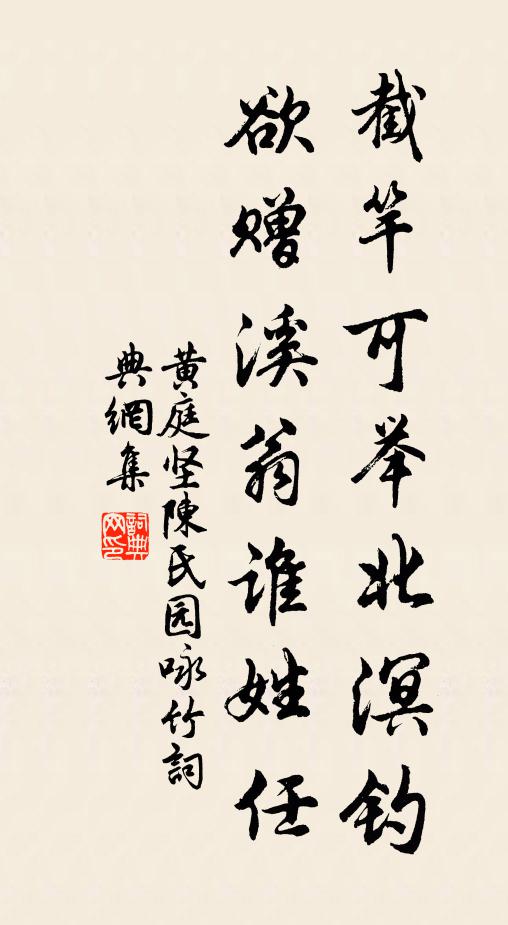 截竿可举北溟钓
欲赠溪翁谁姓任
黄庭坚陳氏园咏竹詞
典網集
詞典
网印